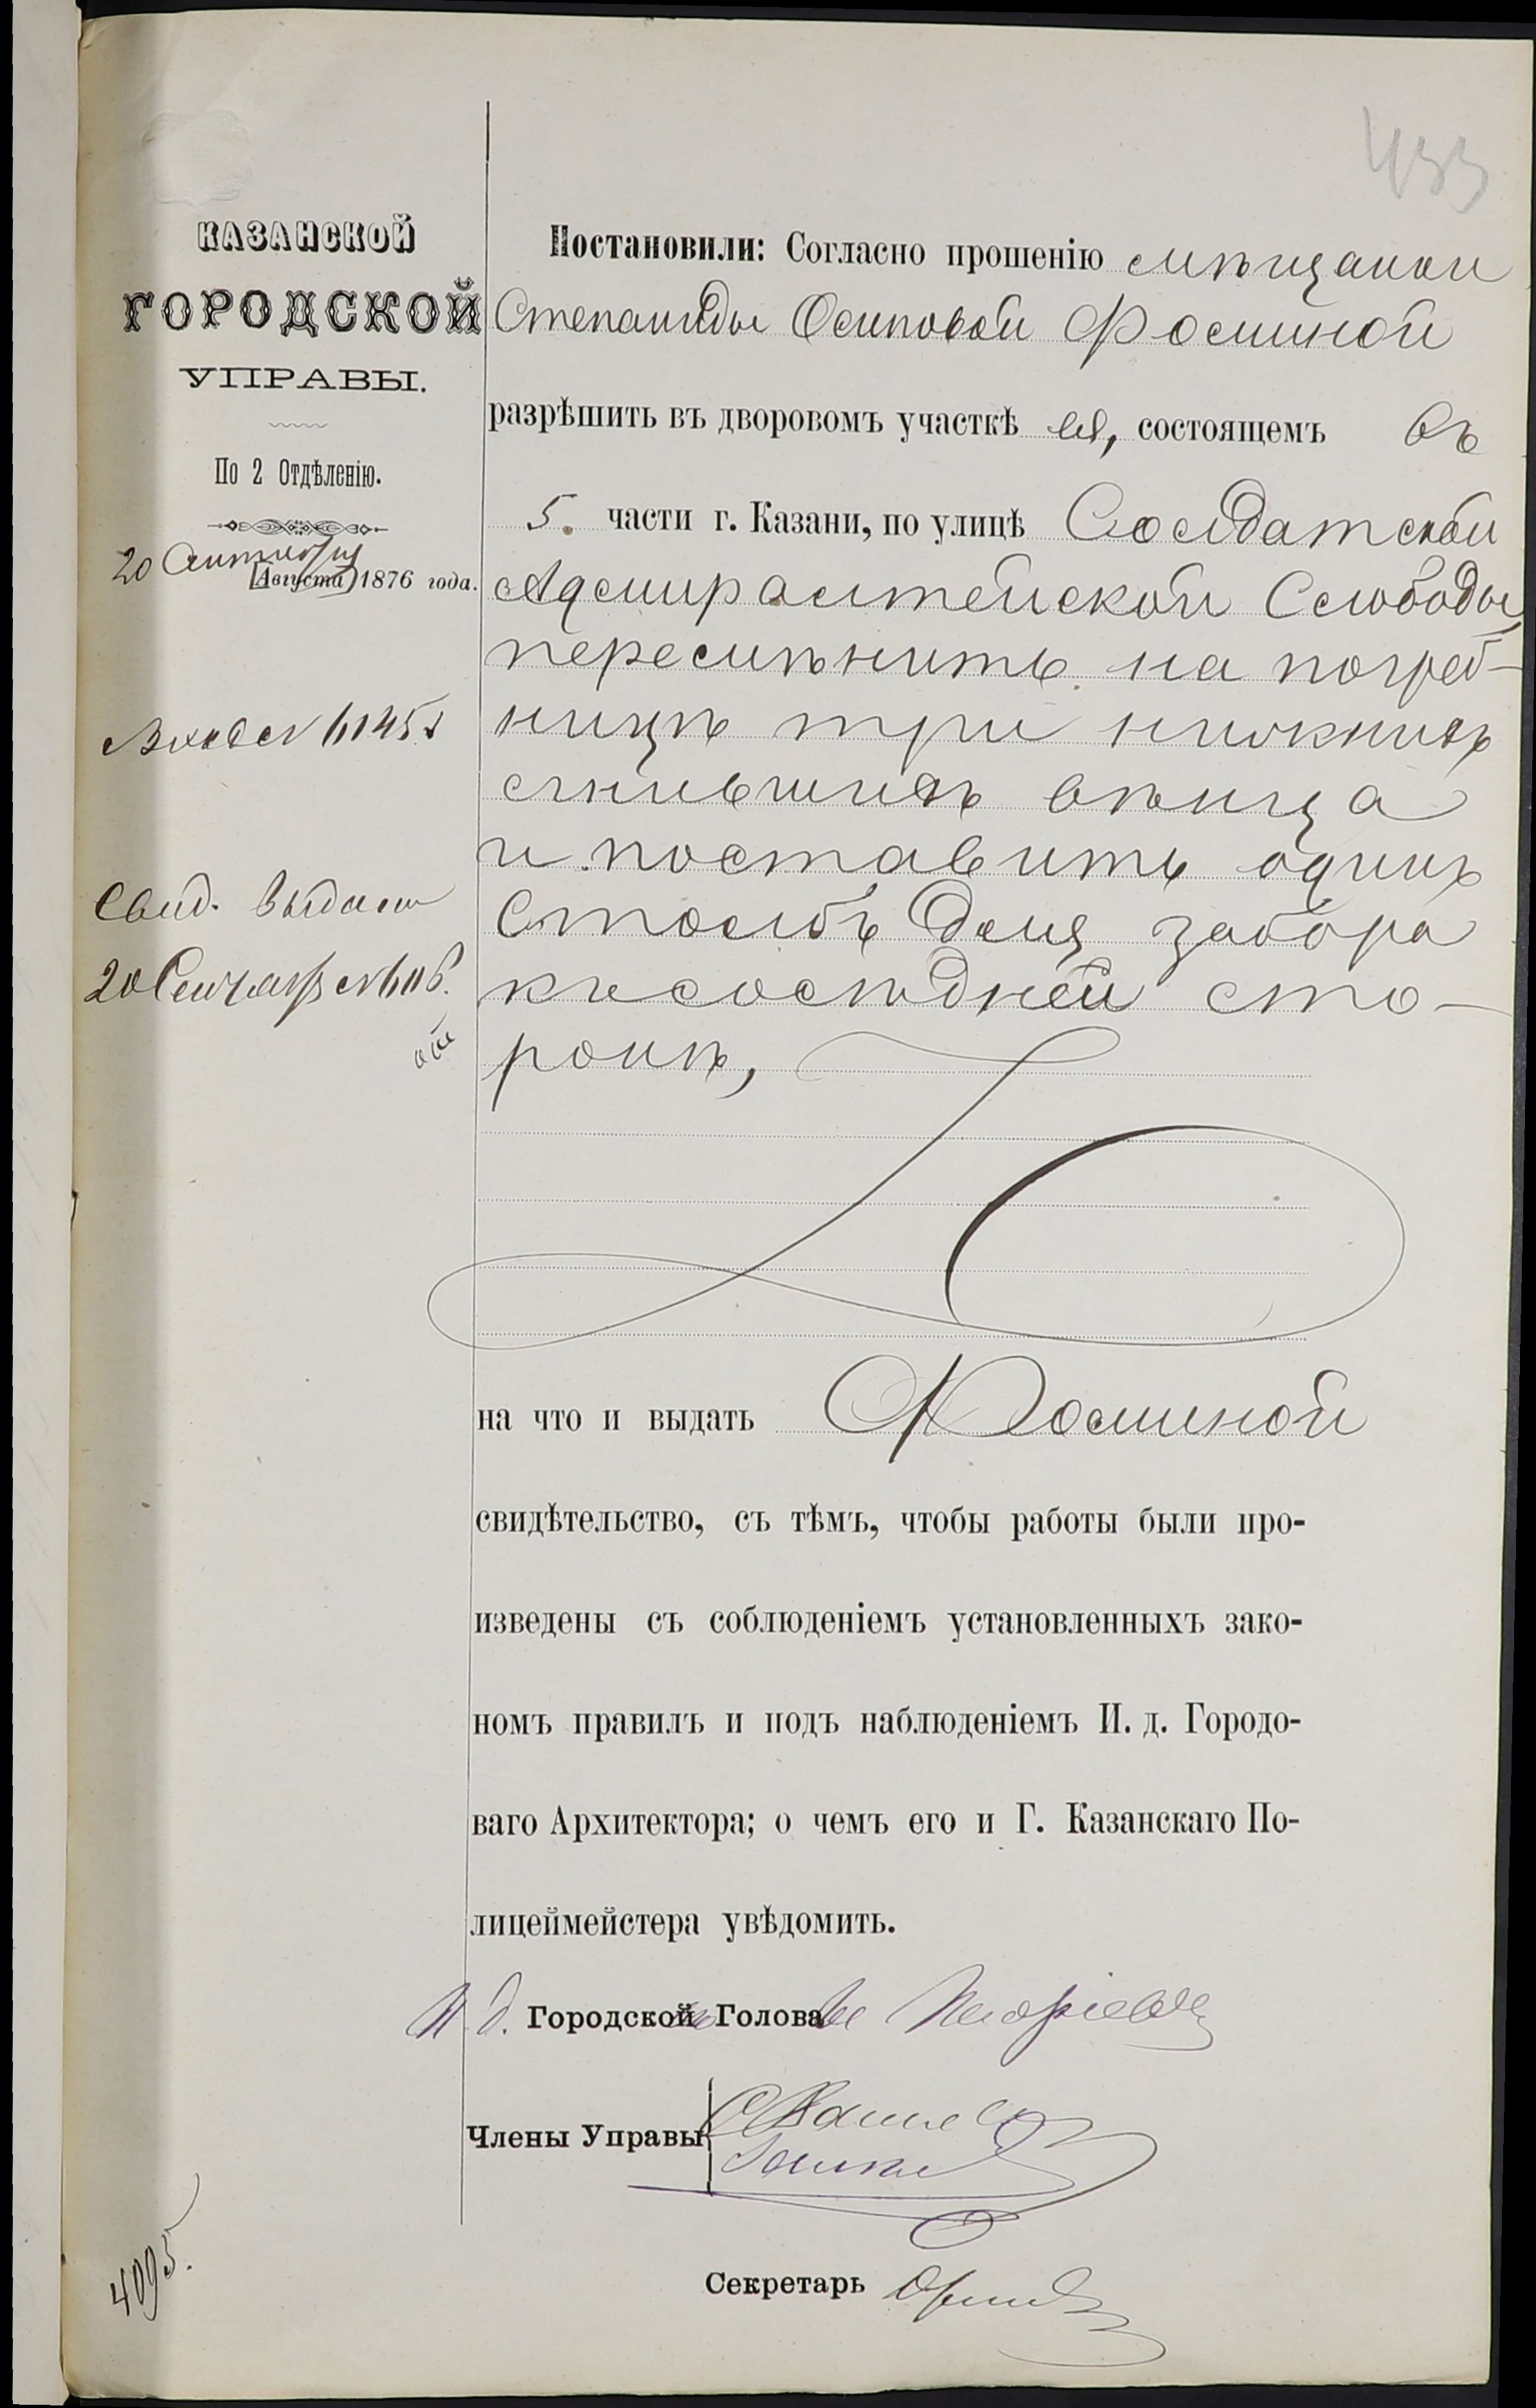 433
КАЗАНСКОЙ
ГОРОДСКОЙ
УПРАВЫ.
По 2 Отдѣленію.
20 Сентября
(Августа) 1876 года.
Входъ № 6145
Свид. выдано
20 Сентября №
4095.
Постановили: Согласно прошенію мѣщанки
Степаниды Осиповой Фоминой
разрѣшить въ дворовомъ участкѣ ея, состоящемъ въ
5. части г. Казани, по улицѣ Солдатской
Адмиралтейской Слободы,
перемѣнить на погреб-
ницѣ три нижнихъ
сгнившихъ вѣнца
и поставить одинъ
столбъ для забора
къ сосѣдней сто-
ронѣ,
на что и выдать Фоминой
свидѣтельство, съ тѣмъ, чтобы работы были про-
изведены съ соблюденіемъ установленныхъ зако-
номъ правилъ и подъ наблюденіемъ И. д. Городо-
ваго Архитектора; о чемъ его и Г. Казанскаго По-
лицеймейстера увѣдомить.
И. д. Городской Голова
Члены Управы
Секретарь